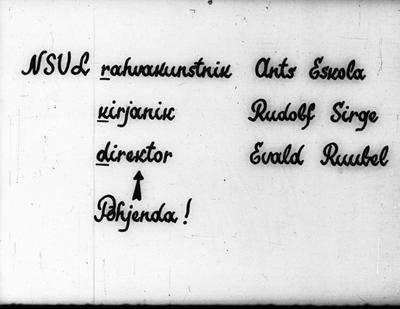 NSVL rahvakunstnik Ants Eskola
kirjanik Rudolf Sirge
direktor Evald Ruubel
Põhjenda!